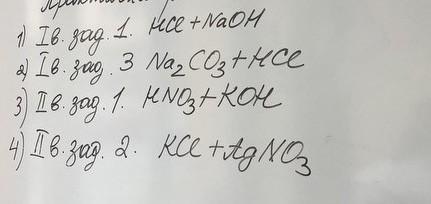 1) I в. зад. 1. HCl + NaOH
2) I в. зад. 3 Na₂CO₃ + HCl
3) II в. зад. 1. HNO₃ + KOH
4) II в. зад. 2. KCl + AgNO₃